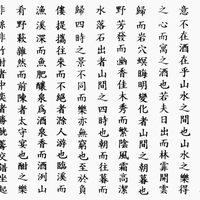 意不在酒在乎山水之間也山水之樂得
之心而寓之酒也若夫日出而林霏開雲
歸而岩穴暝晦明變化者山間之朝暮也
野芳發而幽香佳木秀而繁陰風霜高潔
水落石出者山間之四時也朝而往暮而
歸四時之景不同而樂亦無窮也至於負
僂提攜往來而不絕者滁人遊也臨溪而
漁溪深而魚肥釀泉為酒泉香而酒洌山
肴野蔌雜然而前陳者太守宴也宴酣之
非絲非竹射者中奕者勝觥籌交錯坐起